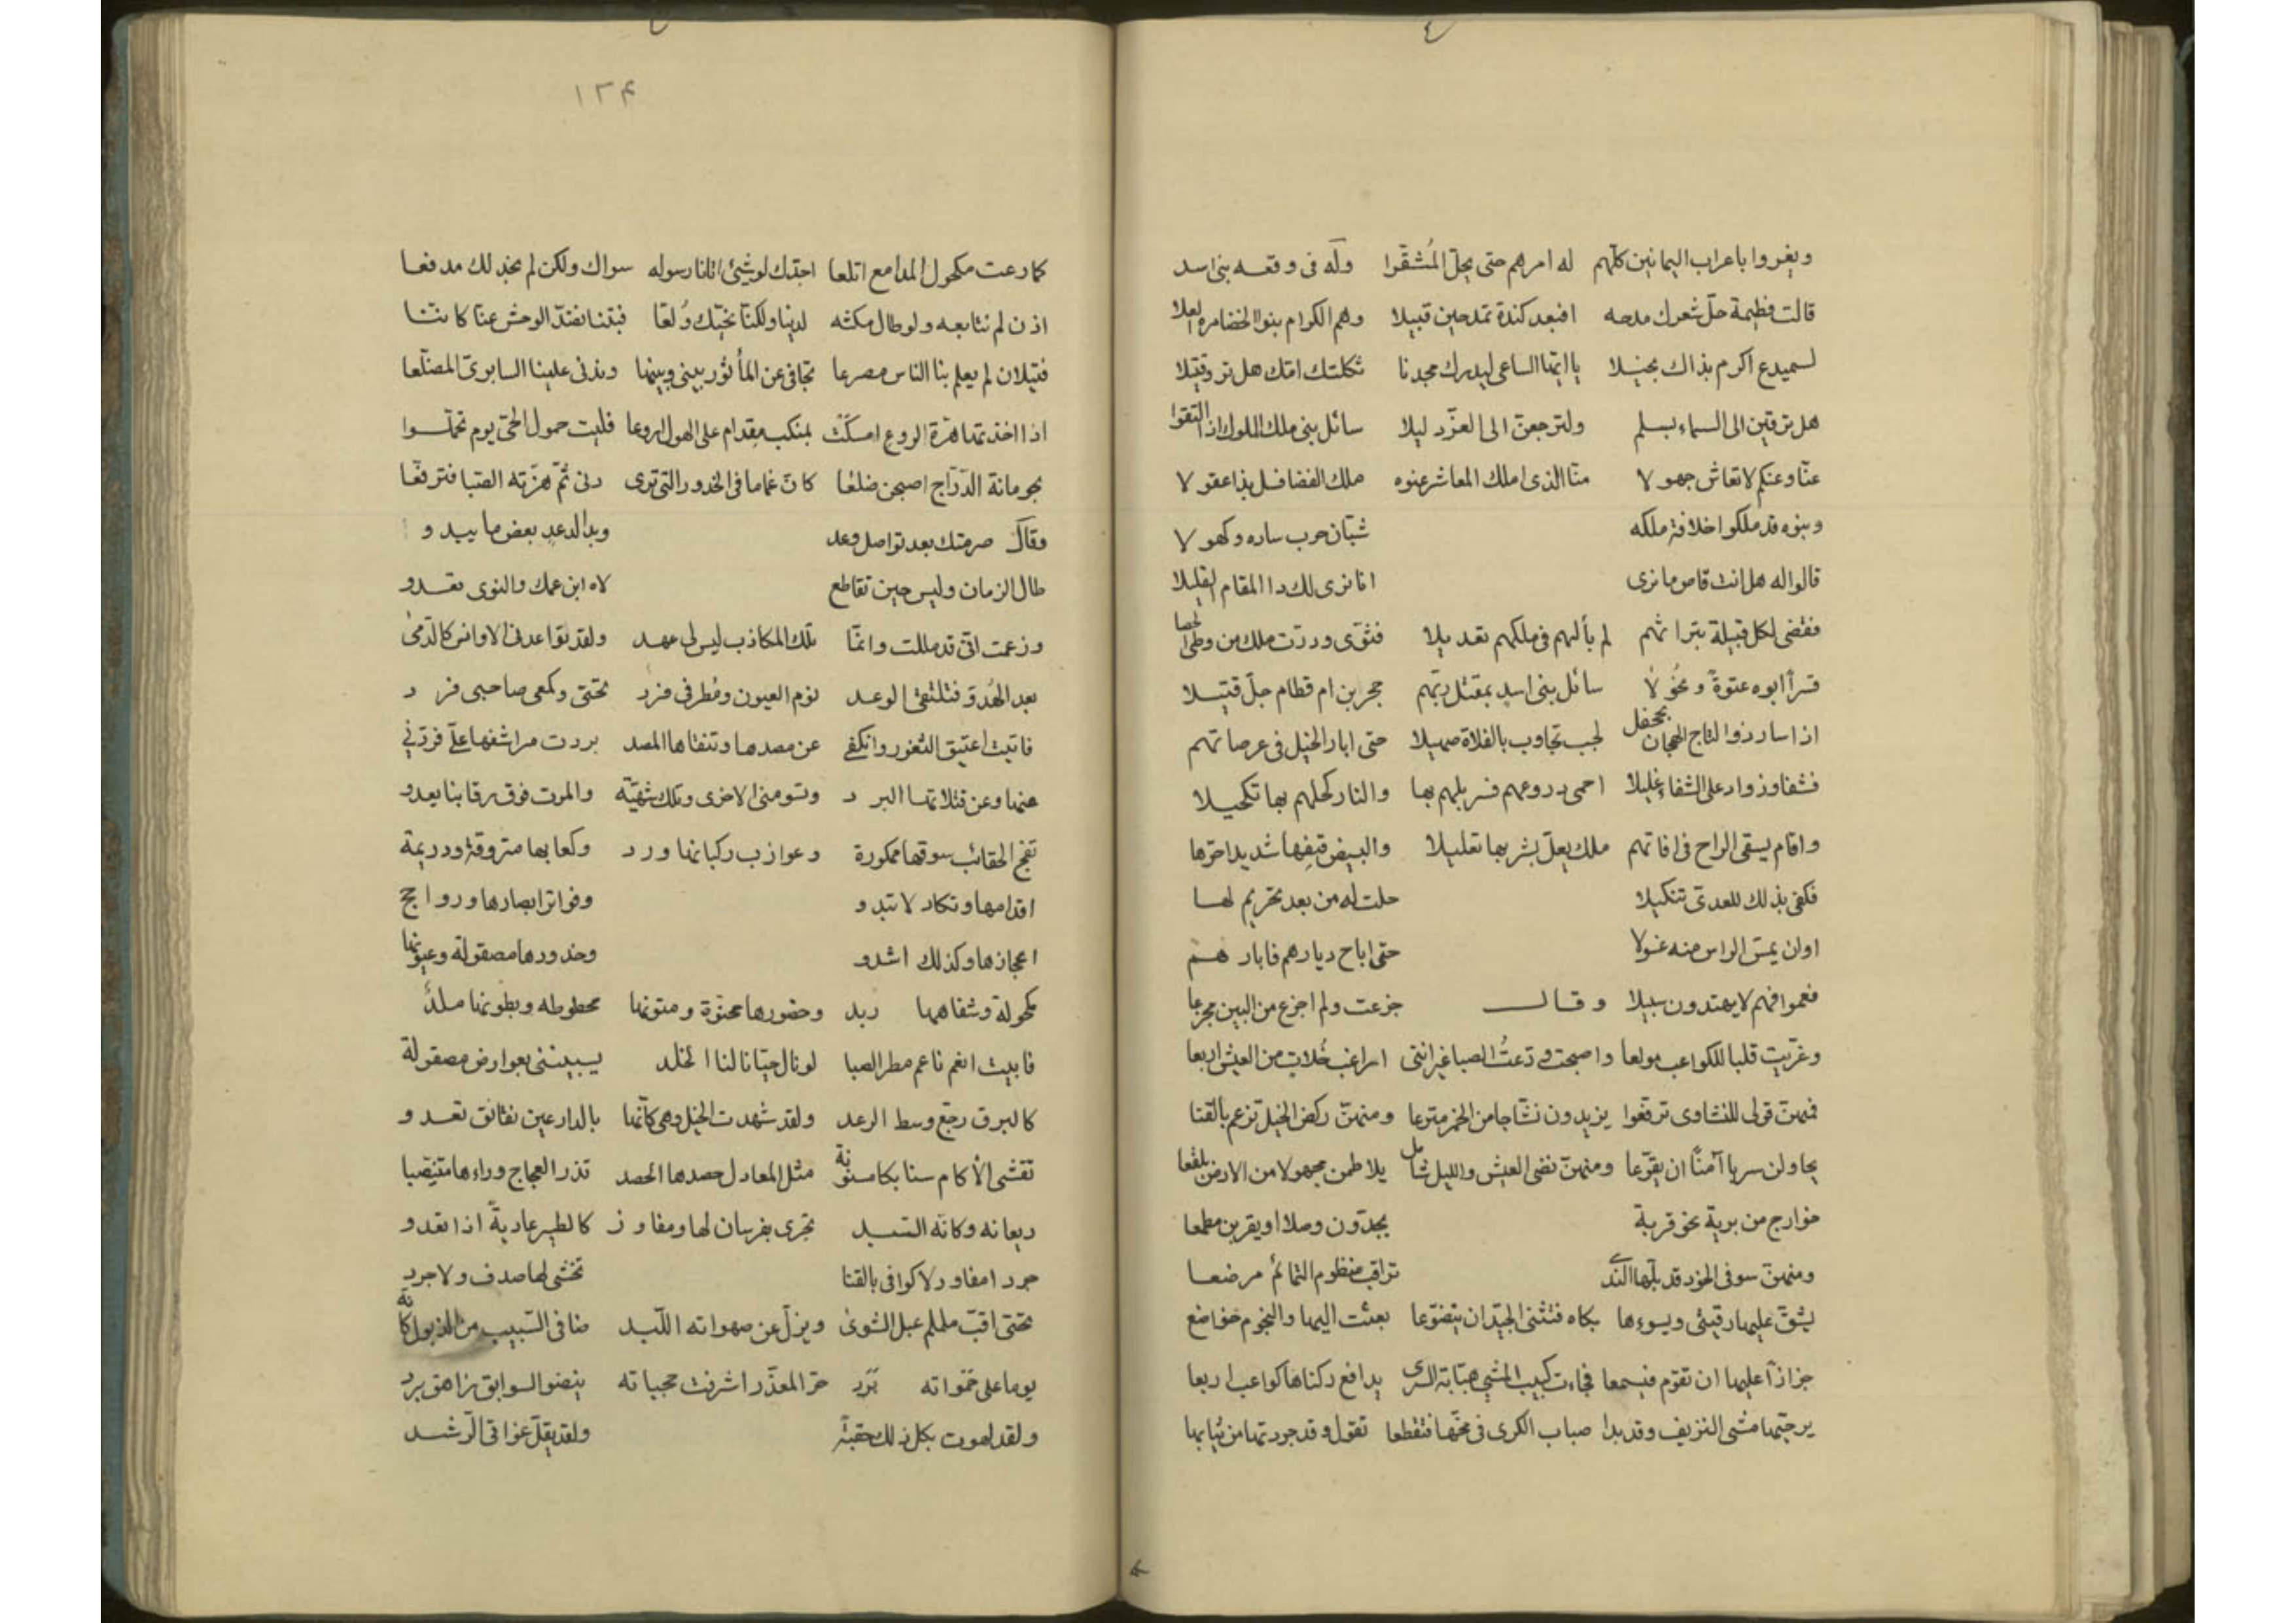 ويغروا باعراب اليمانين كلهم له امرهم حتى يحل المُشقّرا وله فى وقعه بنى اسد
قالت فطيمة حلّ شعرك مدحه افبعد كندة تمدحين قبيلا وهم الكرام بنوا الخضارمه العلا
لسميدع اكرم بذاك نجيلا يا ايها الساعى ليدرك مجدنا ثكلتك امك هل ترد قتيلا
هل ترقين الى السماء بسلم ولترجعن الى العزّ دليلا سائل بنى ملك الملوك اذا التقوا
عنّا وعنكم لا تعاش جهولا منّا الذى املك المعاشر عنوه ملك الفضا فسل بذا عقولا
وبنوه قد ملكوا خلافة ملكه شبّان حرب ساده وكهولا
قالوا له هل انت قاض ما نرى انا نرى لك ذا المقام القليلا
فقضى لكل قبيلة بتراثهم لم يألهم فى ملكهم تعديلا فثوى وورّث ملك من وطئ الحصا
قسراً ابوه عنوةً ونحُولا سائل بنى اسد بمقتل ربّهم حجر بن ام قطام جلّ قتيلا
اذا سار ذوا لتاج الهجان بجحفل لجب تجاوب بالفلاة صهيلا حتى ابار الخيل فى عرصاتهم
فشفا وزواد على الشفاء غليلا احمى دروعهم فسربلهم بها والنار كحلهم بها تكحيلا
واقام يسقى الراح فى افاتهم ملك يعلّ بشربها تعليلا والبيض قبفها شديدا حرّها
فكفى بذلك للعدى تنكيلا حلت له من بعد تحريم لها
اوان يمسّ الراس منه غسولا حتى اباح ديارهم فابارهم
فعموا فهم لا يهتدون سبيلا وقال جزعت ولم اجزع من البين مجزعا
وعزّيت قلبا للكواعب مولعا واصبحت ودّعتُ الصبا غير اننى اراغب خُلات من العيش اربعا
فمنهن قولى للنشاوى ترفّعوا يزيدون نشّاجا من الخمر مترعا ومنهنّ ركض الخيل تزعم بالقنا
يحاولن سربا آمنًا ان يقرّعا ومنهنّ نضى العيش والليل شامل يلاطمن مجهولا من الارض بلقعا
خوارج من برية نحو قرية يجدّون وصلا او يقربن مطمعا
ومنهنّ سوفى الخود قد بلّها الندى تراقب منظوم التمائم مرضعا
يشقّ عليها رقبتى ويسوءها بكاه فتثنى الجيد ان يتضوّعا بعثت اليها والنجوم خواضع
حزازاً عليها ان تقوم فيسمعا فجاءت كبيب المشى هيّابة السرى يدافع ركناها كواعب اربعا
يرجّيها مشى النزيف وقد بدا صباب الكرى فى مخّها فتقطعا تقول وقد جردتها من ثيابها
١٣۴
كما رعت مكحول المدامع اتلعا اجدّك لو شيئ اتانا رسوله سواك ولكن لم نجد لك مدفعا
اذن لم نتابعه ولو طال مكثه لدينا ولكنّا نحبّك وُلعّا فبتنا نصّد الوحش عنّا كاننا
قتيلان لم يعلم بنا الناس مصرعا تجافى عن المأثور بينى وبينها وتدنى علينا السابرىّ المضلّعا
اذا اخذتها هزّة الروع امسكت بمنكب مقدام على الهول اروعا فليت حمول الحىّ يوم تحمّلوا
بجرمانة الدّرّاج اصبحن ضلعا كانّ غماما فى الخدور التى ترى دنى ثمّ هزّته الصّبا فترفّعا
وقالَ صرمتك بعد تواصل دعد وبدا لدعد بعض ما يبدو
طال الزمان وليس حين تقاطع لاه ابن عمك والنوى تعدو
وزعمت انّى قد مللت وانمّا تلك المكاذب ليس لى عهد ولقد تواعدنى الاوانس كالدّمى
بعد الهُدوّ فتلتقى الوعد نوم العيون ومُطرفى فرد تحتى وكمعى صاحبى فرد
فاتيت اعتيق الثغور وانكفى عن مصدها وتنفاها المصد بردت مراشفها علىّ فردّنى
عنها وعن قتلاتها البرد وتسومنى الاخرى وتلك شهيّة والموت فوق رقابنا يعدو
نفج الحقائب سوقها ممكورة وعوازب ركباتها ورد وكعابها متروقة ودريمة
اقدامها وتكاد لا تبدو وفواتر ابصارها ورواجح
اعجازها وكذلك اشدو وخدورها مصقولة وعيونها
مكحولة وشفاهها ربد وخصورها محثوّة ومتونها محطوطه وبطونها ملدُ
فابيت انعم ناعم مطر الصبا لونال حيّا نالنا الخلد يسبيننى بعوارض مصقولة
كالبرق رجّع وسط الرعد ولقد شهدت الخيل وهى كأنّها بالدارعين نقانق تعدو
تقشى الأكام سنابكا مسنونة مثل المعاول حصدها الحصد تذر العجاج وراءها متنصّبا
ريعانه وكانّه السّبد تجرى بفرسان لها ومفاوز كالطير عاديةً اذا تعدو
جرد امفاود لا كوافى بالقنا تخشى لها صدف ولا جرد
تحتى اقبّ ململم عبل الشوىٰ ويزلّ عن صهواته اللّبد ضافى السّبيب من الذبول كانّه
يوما على خمواته بَرّد حرّ المعذّر اشرفت حجباته ينضو السوابق زاهق برد
ولقد لهوت بكل ذلك حقبةً ولقد يقلّ عزاقى الرّشد